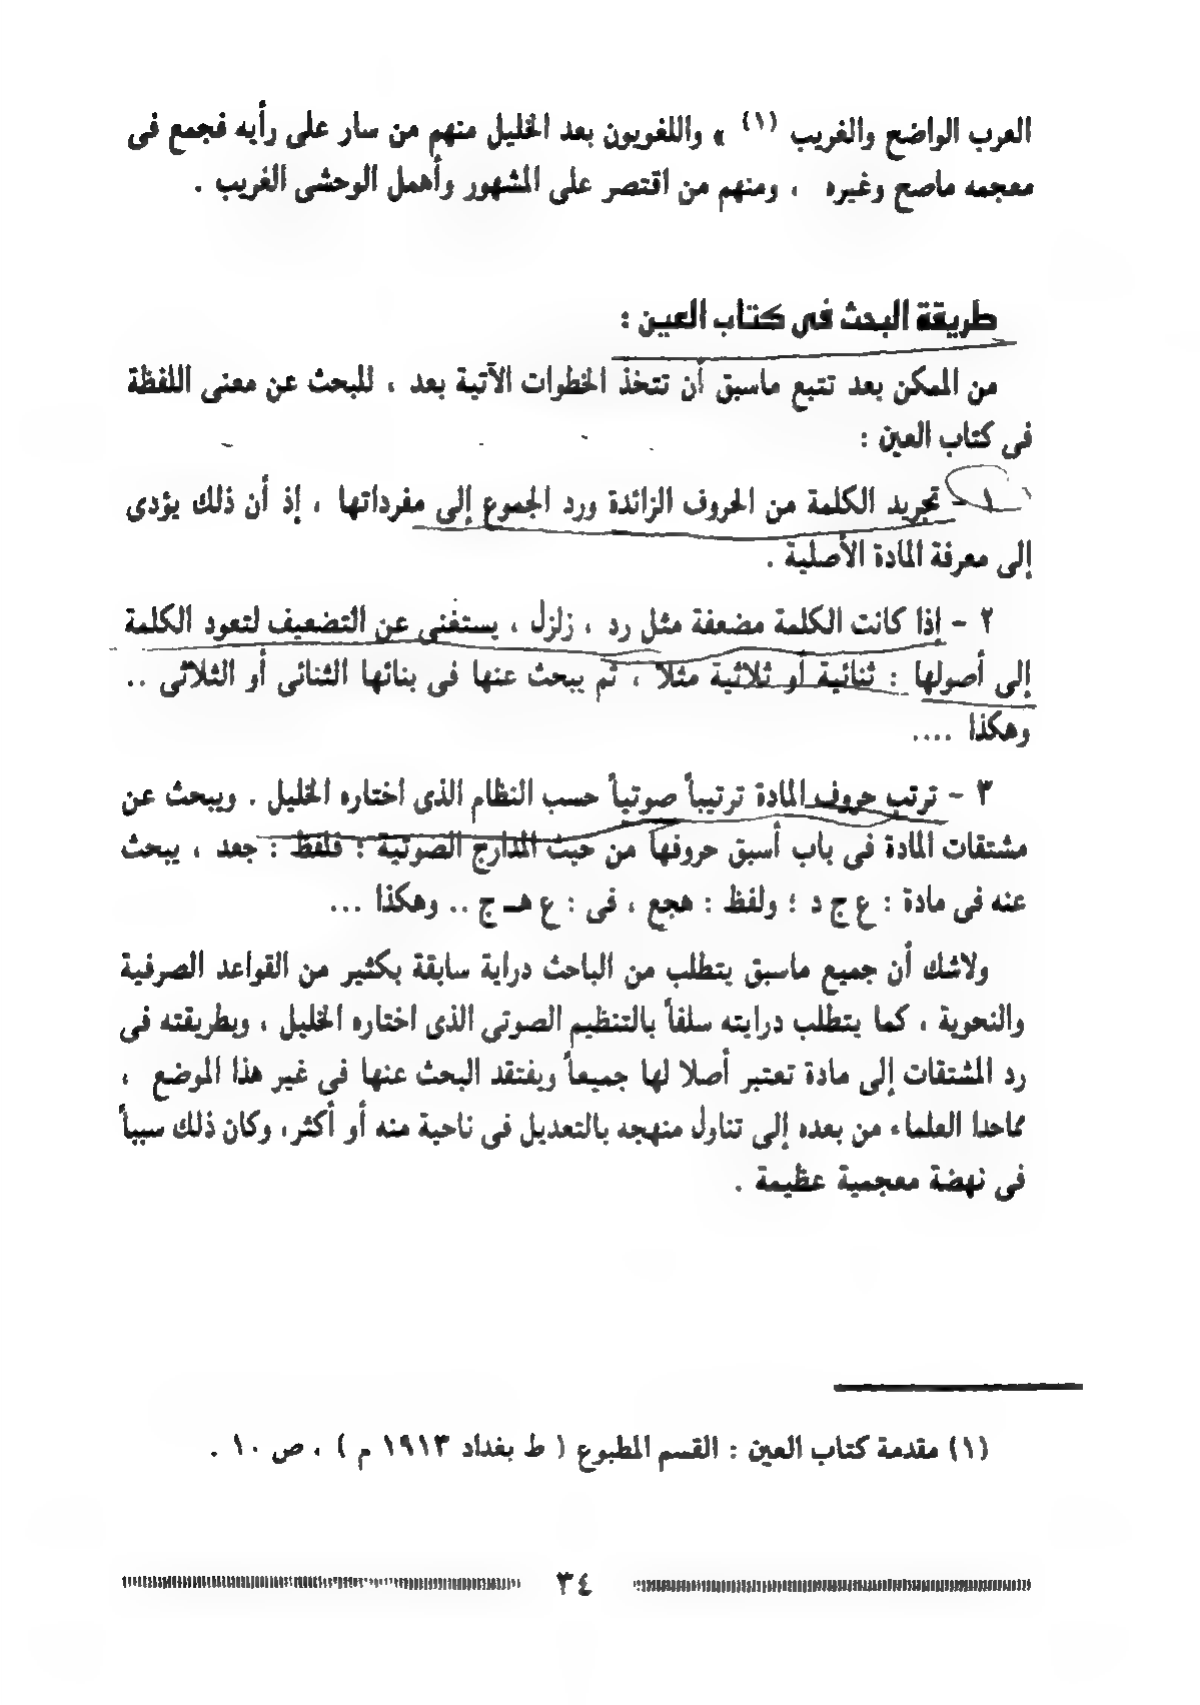 العرب الواضع والغريب (١) » واللغويون بعد الخليل منهم من سار على رأيه فجمع فى
معجمه ماصع وغيره ، ومنهم من اقتصر على المشهور وأهمل الوحشى الغريب .
طريقة البحث فى كتاب العين :
من الممكن بعد تتبع ماسبق أن تتخذ الخطوات الآتية بعد ، للبحث عن معنى اللفظة
فى كتاب العين :
١ - تجريد الكلمة من الحروف الزائدة ورد الجموع إلى مفرداتها ، إذ أن ذلك يؤدى
إلى معرفة المادة الأصلية .
٢ - إذا كانت الكلمة مضعفة مثل رد ، زلزل ، يستغنى عن التضعيف لتعود الكلمة
إلى أصولها : ثنائية أو ثلاثية مثلا ، ثم يبحث عنها فى بنائها الثنائى أو الثلاثى ..
وهكذا ....
٣ - ترتب حروف المادة ترتيباً صوتياً حسب النظام الذى اختاره الخليل . ويبحث عن
مشتقات المادة فى باب أسبق حروفها من حيث المدارج الصوتية : فلفظ : جعد ، يبحث
عنه فى مادة : ع ج د ؛ ولفظ : هجع ، فى : ع هـ ج .. وهكذا ...
ولاشك أن جميع ماسبق يتطلب من الباحث دراية سابقة بكثير من القواعد الصرفية
والنحوية ، كما يتطلب درايته سلفاً بالتنظيم الصوتى الذى اختاره الخليل ، وبطريقته فى
رد المشتقات إلى مادة تعتبر أصلا لها جميعاً ويفتقد البحث عنها فى غير هذا الموضع ،
مماحدا العلماء من بعده إلى تناول منهجه بالتعديل فى ناحية منه أو أكثر، وكان ذلك سبباً
فى نهضة معجمية عظيمة .
(١) مقدمة كتاب العين : القسم المطبوع ( ط بغداد ١٩١٣ م ) ، ص ١٠ .
٣٤